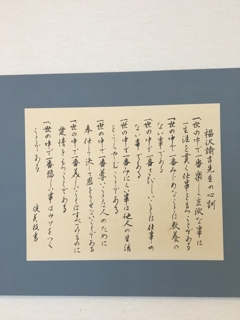 福沢諭吉先生の心訓
一、世の中で一番楽しく立派な事は
一生涯を貫く仕事をもつことである
一、世の中で一番みじめなことは教養の
ない事である
一、世の中で一番さびしいことは仕事の
ない事である
一、世の中で一番みにくい事は他人の生活
をうらやむ
一、世の中で一番尊いことは人のために
奉仕し決して恩をきせないことである
一、世の中で一番美しいことはすべてのものに
愛情をもつことである
一、世の中で一番悲しい事はウソをつく
ことである